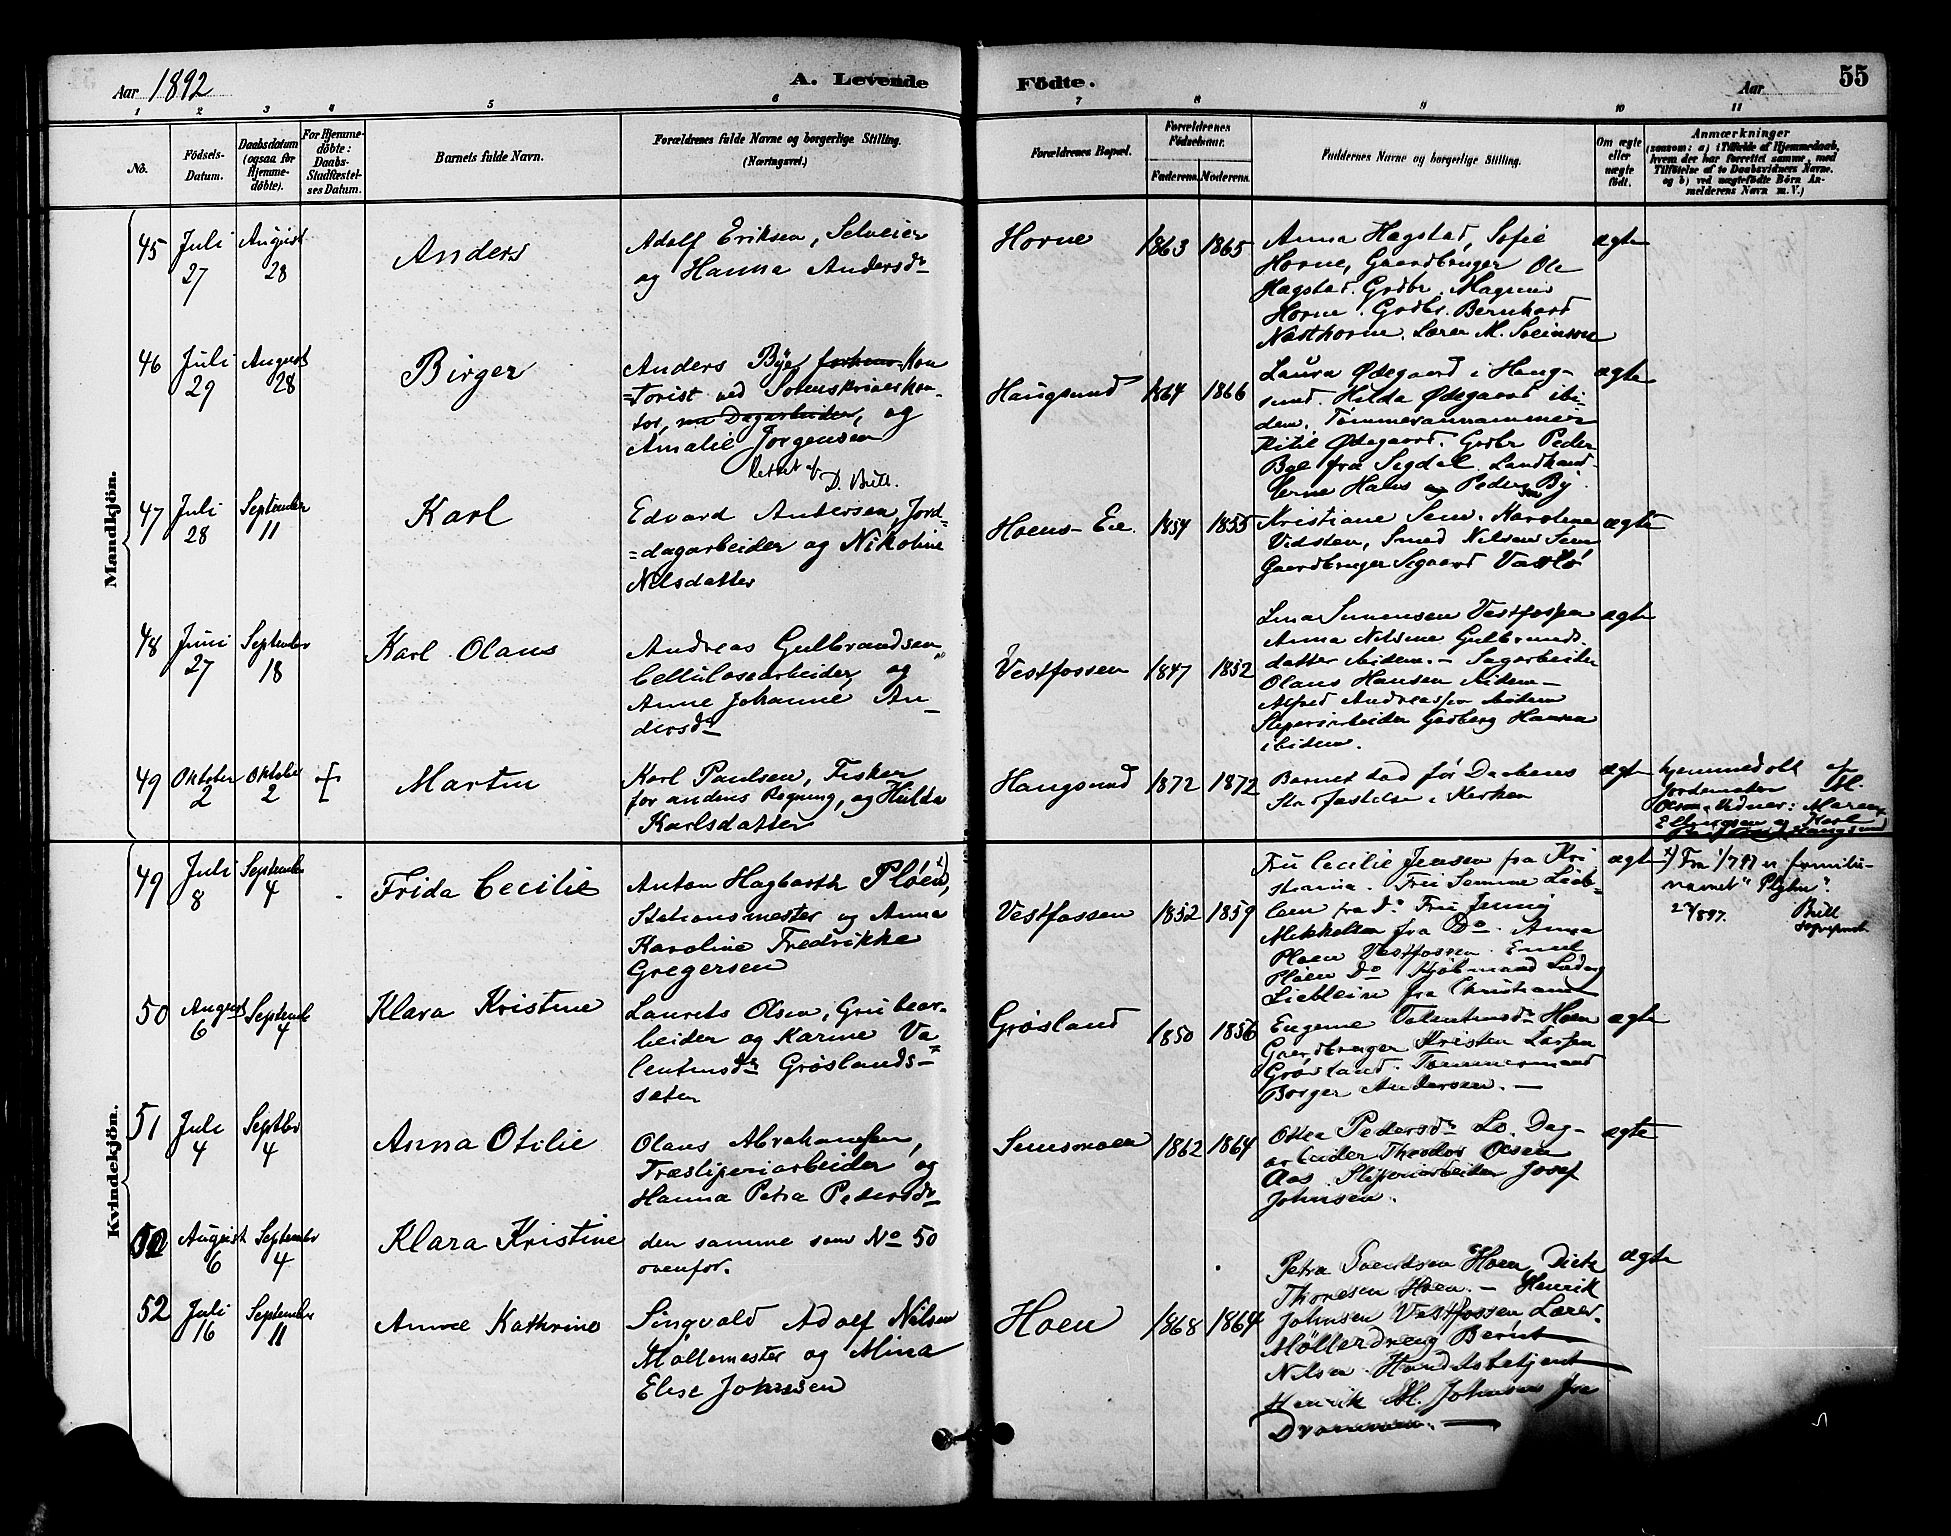 Aar 1892
A. Levende Födte.
Aar
55
1 2 3 4 5 6 7 8 9 10 11
No.
Födsels-Datum.
Daabsdatum (ogsaa for Hjemme-döbte).
For Hjemme-döbte: Daabs-Stadfæstel-ses Datum.
Barnets fulde Navn.
Forældrenes fulde Navne og borgerlige Stilling. (Næringsvei.)
Forældrenes Bopæl.
Forældrenes Födselsaar.
Faderens. Moderens.
Faddernes Navne og borgerlige Stilling.
Om ægte eller uægte födt.
Anmærkninger
(saasom: a) i Tilfælde af Hjemmedaab,
hvem der har forrettet samme, med
Tilföielse af to Daabsvidners Navne.
og b) ved uægtefödte Börn An-
melderens Navn m. V.)
Mandkjön.
45 Juli 27 August 28 Anders
Adolf Eriksen, Selveier
og Hanna Andersdr
Horne 1863 1865
Anna Hagstad, Sofie
Horne, Gaardbruger Ole
Hagstad. Grdbr. Magnus
Horne. Grdbr. Bernhard
Nasthorne. Lærer M. Sveinsson
ægte
46 Juli 29 August 28 Birger
Anders Bye, forhenv. Kon
=torist ved Sorenskriverkon-
tor, nu Dagarbeider, og
Amalie Jørgensen
Rettet af D. Bull.
Haugsund 1864 1866
Laura Ødegaard i Haug-
sund. Hilda Ødegaard ibi-
dem. Tømmerannammer
Kitil Ødegaard. Grdbr Peder
Bye fra Sigdal. Landhand-
lerne Hans og Peder By
ægte
47 Juli 28 September 11 Karl
Edvard Andersen, Jord-
=dagarbeider og Nikoline
Nilsdatter
Hoens-Eie 1854 1855
Kristiane Sem. Karoline
Vidsten, Smed Nilsen Sem
Gaardbruger Segaard
ægte
48 Juni 27 September 18 Karl Olaus
Andreas Gulbrandsen
Cellulosearbeider og
Anne Johanne An-
dersdr
Vestfossen 1847 1852
Lina Simensen Vestfossen
Anna Nilsine Gulbrands-
datter ibidem. - Sagarbeider
Olaus Hansen ibidem -
Alfred Andreassen ibidem
Sliperiarbeider Gudberg Hansen
ibidem.
ægte
49 Oktober 2 Oktober 2 + Martin
Karl Paulsen, Fisker
for andens Regning, og Hulda
Karlsdatter
Haugsund 1872 1872
Barnet død før Daabens
Stadfæstelse i Kirken
ægte
hjemmedøbt af
Jordemoder
Olsen. Vidner: Maren
Ellingsen og Karl
Haugsund
Kvindekjön.
49 Juli 8 September 4 Frida Cecilie
Anton Hagbarth Pløen x),
Stationsmester og Anna
Karoline Fredrikke
Gregersen
Vestfossen 1852 1859
Fru Cecilie Jensen fra Kri
stiania. Fru Semine Lieb-
lein fra do Fru Jenny
Mikkelsen fra Do. Anna
Pløen Vestfossen. Emil
Pløen Do Kjøbmand Ludvig
Lieblein fra Christiania
ægte
x) Fra 1/7 97 er familie-
navnet "Plytn".
Bull
sogneprest
50 August 6 September 4 Klara Kristine
Laurits Olsen, Grubear-
beider og Karine Va-
lentinsdr Grøslands-
sæter
Grøsland 1850 1856
Eugenie Valentinsdr Hoen
Gaardbruger Kristen Larsen
Grøsland. Tømmermand
Borger Andersen. -
ægte
51 Juli 4 Septbr 4 Anna Otilie
Olaus Abrahamsen,
Træsliperiarbeider og
Hanna Petra Pedersdr
Semsmoen 1862 1864
Othea Pedersdr Lo. Dag-
arbeider Theodor Olsen
Aas. Sliperiarbeider Josef
Johnsen.
ægte
52 August 6 September 4 Klara Kristine
den samme som No 50
ovenfor.
52 Juli 16 September 11 Anne Kathrine
Singvald Adolf Nilsen
Møllemester og Mina
Elise Johnsen
Hoen 1868 1864
Petra Hoen,
Thoresen Hoen. - Henrik
Johnsen Vestfossen Lærer.
Møllerdreng Bernt
Nilsen. Handelsbetjent
Henrik M. Johnsen fra
Drammen. -
ægte